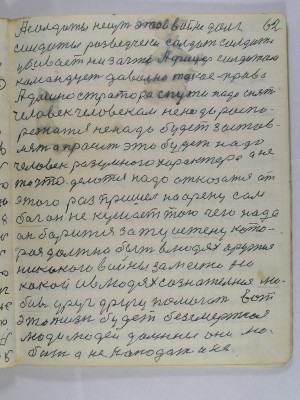 А солдаты несут этой войне долг 62
солдаты разведчики солдат солдата
убивает ни за что Афицер солдатами
командует давно такое право
Администратора спути надо снять
человек человекам не надо распо-
режатся не надо будет застав-
лят а просит это будет надо
человек разумного характера а не
то что делотся надо отказатся от
этого раз пришел на арену сам
бог он не кушает того чего надо
он борится за ту истену кото-
рая должна быт в людях дружная
никакого войны заместо ни
какой а в людях сознателная лю-
бов друг другу помогат вот
это жизн будет безсмертная
люди людей должны они лю-
бит а не нападат и не